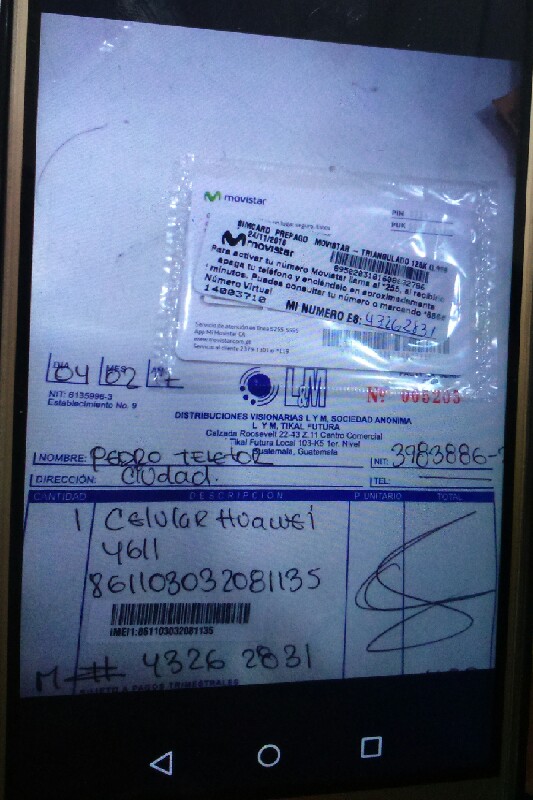 movistar
PIN
PUK
SIMCARD PREPAGO MOVISTAR - TRIANGULADO 128K
24/11/2016
movistar
Para activar tu número Movistar llama al *255, al recibir
apaga tu teléfono y enciéndelo en aproximadamente
minutos. Puedes consultar tu número marcando
Número Virtual
14003710
MI NUMERO ES: 43262831
App Mi Movistar CA
04 02 17
NIT: 8135998-3
Establecimiento No. 9
L&M
Nº 006205
DISTRIBUCIONES VISIONARIAS L Y M, SOCIEDAD ANONIMA
L Y M, TIKAL FUTURA
Calzada Roosevelt 22-43 Z.11 Centro Comercial
Tikal Futura Local 103-K5 1er. Nivel
Guatemala, Guatemala
NOMBRE: PEDRO TELETOR NIT: 3983886-
DIRECCIÓN: Ciudad. TEL:
CANTIDAD DESCRIPCION P. UNITARIO TOTAL
1 CELULAR HUAWEI
Y611
861103032081135
IMEI1:861103032081135
M-# 4326 2831
SUJETO A PAGOS TRIMESTRALES